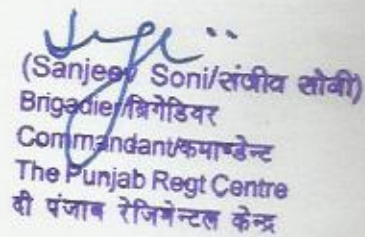 (Sanjeev Soni/संजीव सोनी)
Brigadier/ब्रिगेडियर
Commandant/कमाण्डेन्ट
The Punjab Regt Centre
दी पंजाब रेजिमेन्टल केन्द्र